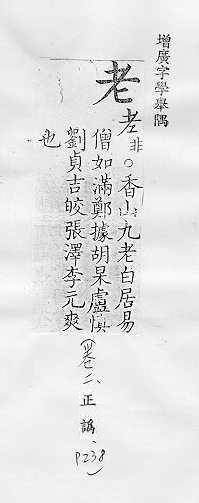 增廣字學舉隅
老
耂非○香山九老白居易
僧如滿鄭據胡杲盧慎
劉貞吉皎張澤李元爽
也
(卷二、正譌、P238)